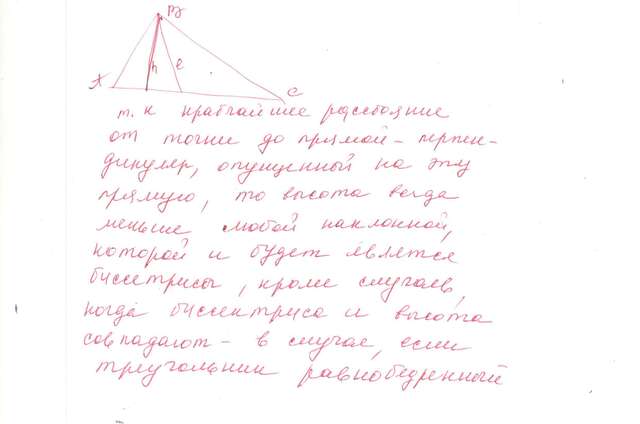 В
А
h
l
С
т. к кратчайшее расстояние
от точки до прямой - перпен-
дикуляр, опущенной на эту
прямую, то высота всегда
меньше любой наклонной,
которой и будет является
биссетрисы, кроме случаев,
когда биссектриса и высота
совпадают - в случае, если
треугольник равнобедренный